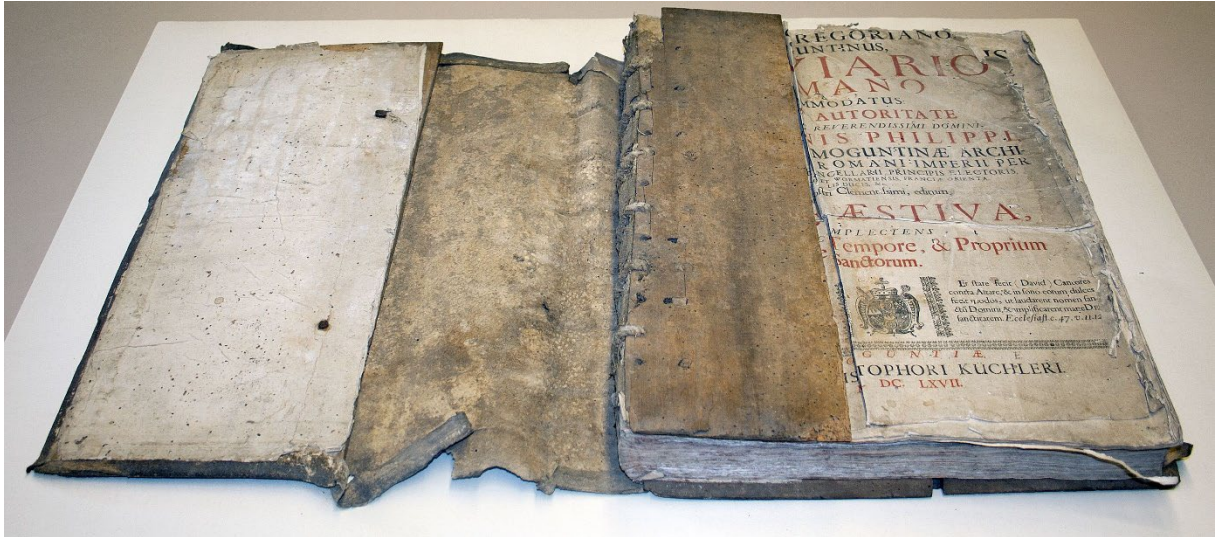 REGORIANO
UNTINUS,
VIARIO
MANO
MMODATUS.
AUTORITATE
REVERENDISSIMI DOMINI,
NIS PHILIPPI
MOGUNTINÆ ARCHI-
ROMANI IMPERII PER
NCELLARII, PRINCIPIS ELECTORIS,
WORMATIENSIS, FRANCIÆ ORIENTA
LIS DUCIS, &c.
stri Clementissimi, editum,
ÆSTIVA,
MPLECTENS
Tempore, & Proprium
Sanctorum.
Et stare fecit (David) Cantores
contra Altare, & in sono eorum dulces
fecit modos, ut laudarent nomen san-
ctū Domini, & amplificarent mane Dei
sanctitatem. Ecclesiast. c. 47. v. 11. 12
GUNTIÆ,
TOPHORI KUCHLERI
DC. LXVII.